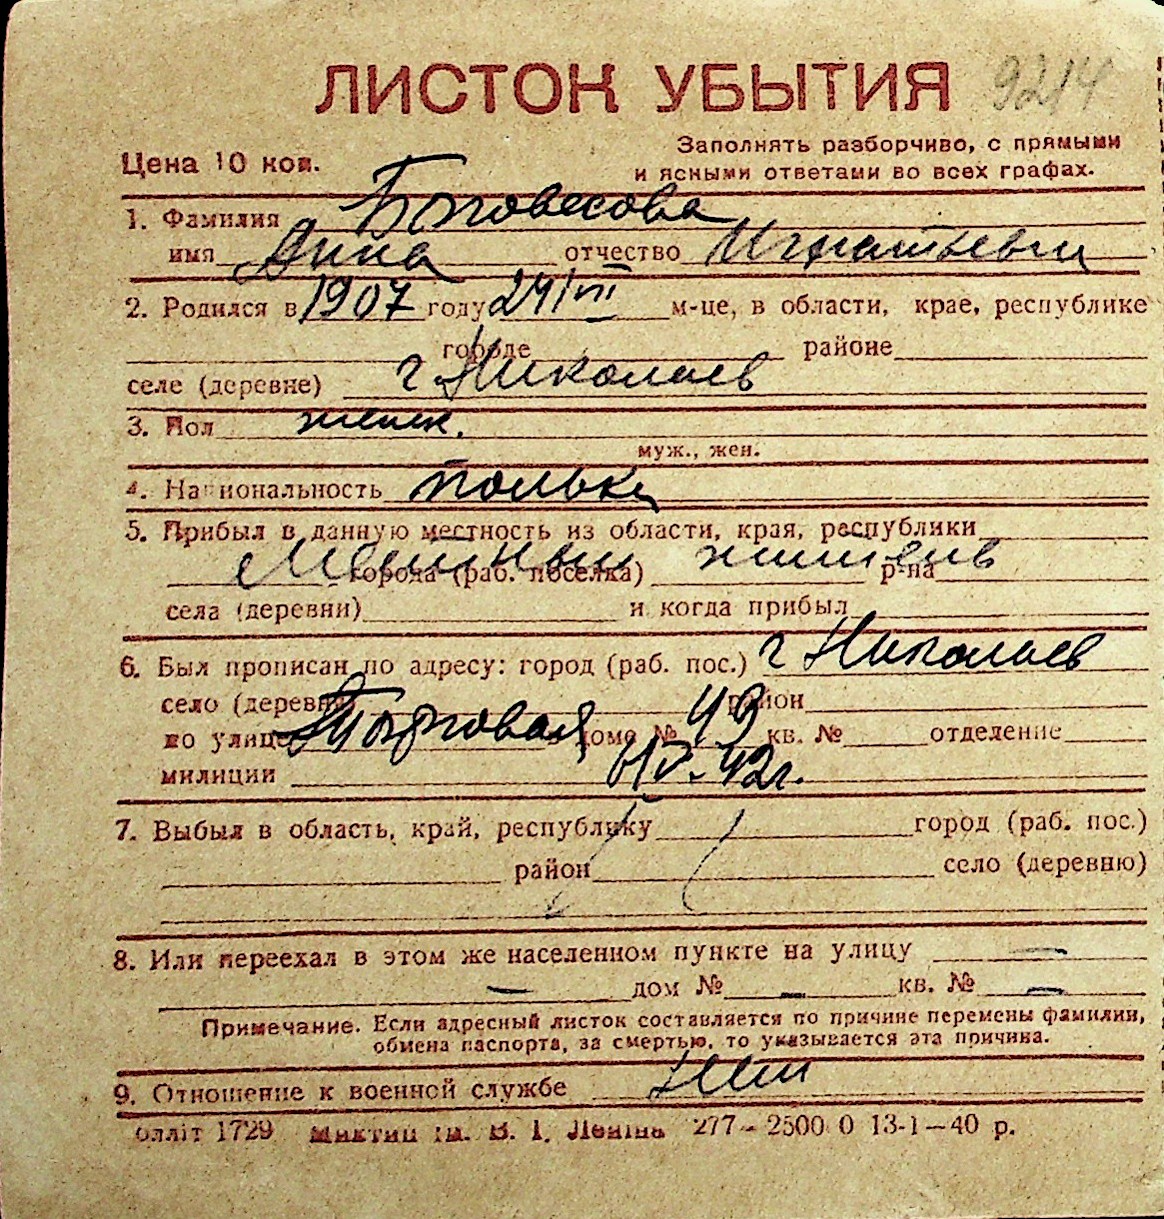 ЛИСТОК УБЫТИЯ 9214
Цена 10 коп.
Заполнять разборчиво, с прямыми
и ясными ответами во всех графах.
1. Фамилия Боговесова
имя Анна отчество Игнатьевн
2. Родился в 1907 году 24/VII м-це, в области, крае, республике
городе районе
селе (деревне) г Николаев
3. Пол женск.
муж., жен.
4. Национальность полька
5. Прибыл в данную местность из области, края, республики
Местный житель
города (раб. поселка) р-на
села (деревни) и когда прибыл
6. Был прописан по адресу: город (раб. пос.) г Николаев
село (деревня) район
по улице Торговая в доме № 49 кв. № отделение
милиции 42г.
7. Выбыл в область, край, республику город (раб. пос.)
район село (деревню)
8. Или переехал в этом же населенном пункте на улицу —
— дом № — кв. № —
Примечание. Если адресный листок составляется по причине перемены фамилии,
обмена паспорта, за смертью, то указывается эта причина.
9. Отношение к военной службе нет
олліт 1729 ім. В. І. Леніна 277 – 2500 0 13-1–40 р.